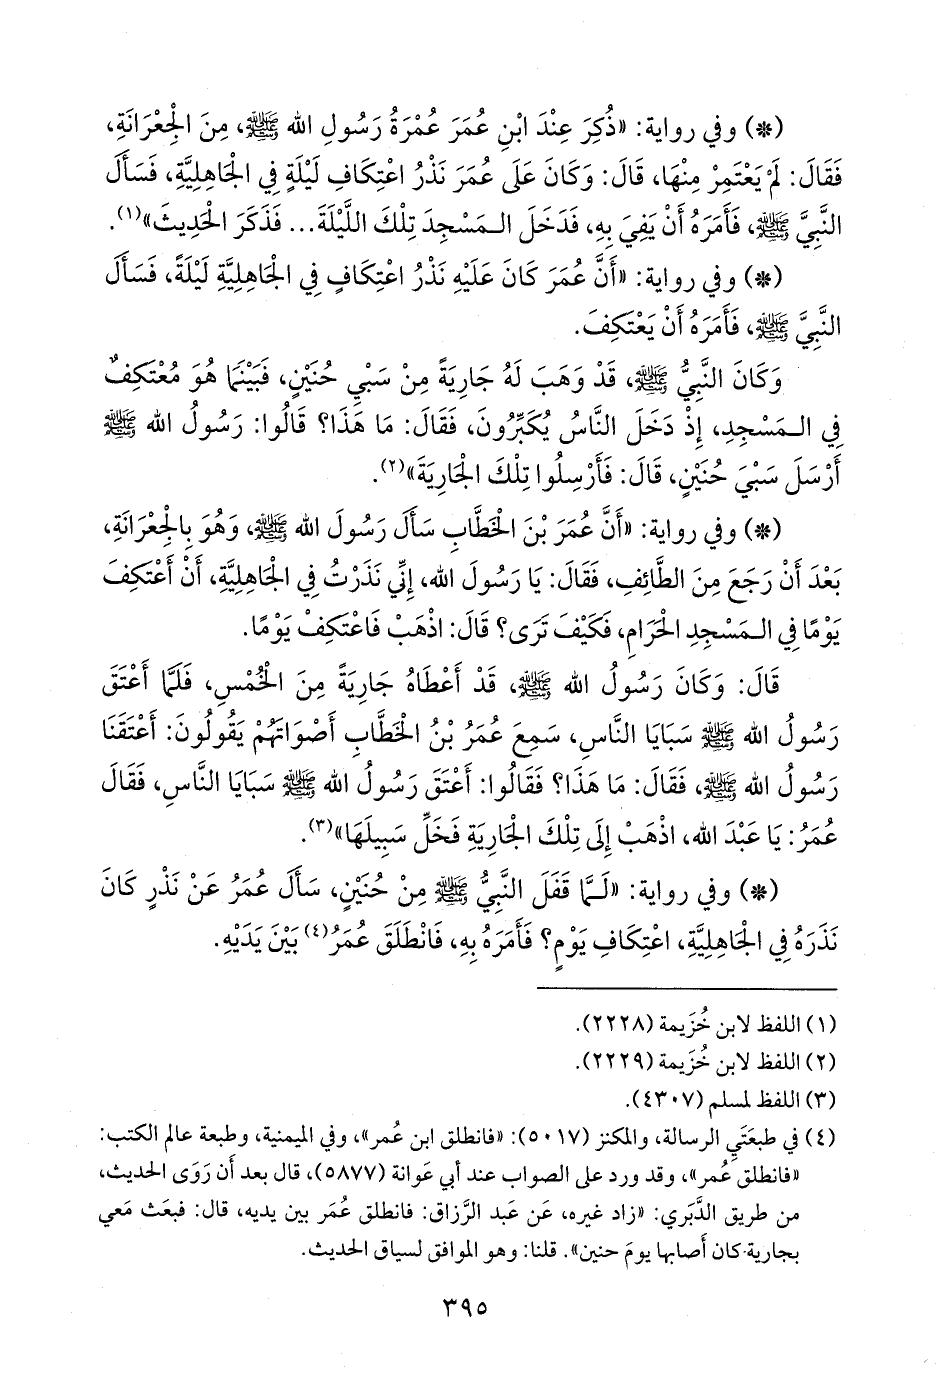 (*) وفي رواية: «ذُكِرَ عِنْدَ ابْنِ عُمَرَ عُمْرَةُ رَسُولِ الله ﷺ، مِنَ الْجِعْرَانَةِ،
فَقَالَ: لَمْ يَعْتَمِرْ مِنْهَا، قَالَ: وَكَانَ عَلَى عُمَرَ نَذْرُ اعْتِكَافِ لَيْلَةٍ فِي الْجَاهِلِيَّةِ، فَسَأَلَ
النَّبِيَّ ﷺ، فَأَمَرَهُ أَنْ يَفِيَ بِهِ، فَدَخَلَ الْمَسْجِدَ تِلْكَ اللَّيْلَةَ... فَذَكَرَ الْحَدِيثَ»(١).
(*) وفي رواية: «أَنَّ عُمَرَ كَانَ عَلَيْهِ نَذْرُ اعْتِكَافٍ فِي الْجَاهِلِيَّةِ لَيْلَةً، فَسَأَلَ
النَّبِيَّ ﷺ، فَأَمَرَهُ أَنْ يَعْتَكِفَ.
وَكَانَ النَّبِيُّ ﷺ، قَدْ وَهَبَ لَهُ جَارِيَةً مِنْ سَبْيِ حُنَيْنٍ، فَبَيْنَمَا هُوَ مُعْتَكِفٌ
فِي الْمَسْجِدِ، إِذْ دَخَلَ النَّاسُ يُكَبِّرُونَ، فَقَالَ: مَا هَذَا؟ قَالُوا: رَسُولُ الله ﷺ
أَرْسَلَ سَبْيَ حُنَيْنٍ، قَالَ: فَأَرْسِلُوا تِلْكَ الْجَارِيَةَ»(٢).
(*) وفي رواية: «أَنَّ عُمَرَ بْنَ الْخَطَّابِ سَأَلَ رَسُولَ الله ﷺ، وَهُوَ بِالْجِعْرَانَةِ،
بَعْدَ أَنْ رَجَعَ مِنَ الطَّائِفِ، فَقَالَ: يَا رَسُولَ الله، إِنِّي نَذَرْتُ فِي الْجَاهِلِيَّةِ، أَنْ أَعْتَكِفَ
يَوْمًا فِي الْمَسْجِدِ الْحَرَامِ، فَكَيْفَ تَرَى؟ قَالَ: اذْهَبْ فَاعْتَكِفْ يَوْمًا.
قَالَ: وَكَانَ رَسُولُ الله ﷺ، قَدْ أَعْطَاهُ جَارِيَةً مِنَ الْخُمْسِ، فَلَمَّا أَعْتَقَ
رَسُولُ الله ﷺ سَبَايَا النَّاسِ، سَمِعَ عُمَرُ بْنُ الْخَطَّابِ أَصْوَاتَهُمْ يَقُولُونَ: أَعْتَقَنَا
رَسُولُ الله ﷺ، فَقَالَ: مَا هَذَا؟ فَقَالُوا: أَعْتَقَ رَسُولُ الله ﷺ سَبَايَا النَّاسِ، فَقَالَ
عُمَرُ: يَا عَبْدَ الله، اذْهَبْ إِلَى تِلْكَ الْجَارِيَةِ فَخَلِّ سَبِيلَهَا»(٣).
(*) وفي رواية: «لَمَّا قَفَلَ النَّبِيُّ ﷺ مِنْ حُنَيْنٍ، سَأَلَ عُمَرُ عَنْ نَذْرٍ كَانَ
نَذَرَهُ فِي الْجَاهِلِيَّةِ، اعْتِكَافِ يَوْمٍ؟ فَأَمَرَهُ بِهِ، فَانْطَلَقَ عُمَرُ(٤) بَيْنَ يَدَيْهِ.
(١) اللفظ لابن خُزَيمة (٢٢٢٨).
(٢) اللفظ لابن خُزَيمة (٢٢٢٩).
(٣) اللفظ لمسلم (٤٣٠٧).
(٤) في طبعَتَي الرسالة، والمكنز (٥٠١٧): «فانطلق ابن عُمر»، وفي الميمنية، وطبعة عالم الكتب:
«فانطلق عُمر»، وقد ورد على الصواب عند أبي عَوانة (٥٨٧٧)، قال بعد أن رَوَى الحديث،
من طريق الدَّبَري: «زاد غيره، عَن عَبد الرَّزاق: فانطلق عُمَر بين يديه، قال: فبعَث مَعي
بجارية كان أصابها يومَ حنين». قلنا: وهو الموافق لسياق الحديث.
٣٩٥